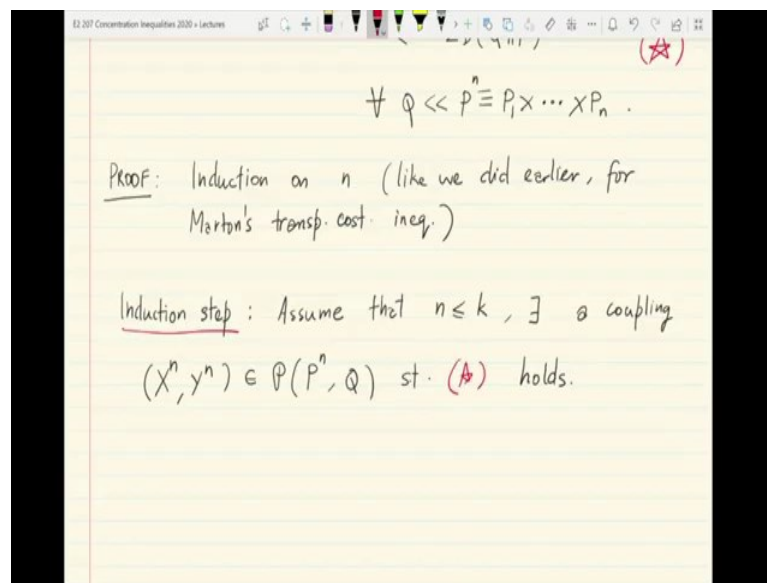 E2 207 Concentration Inequalities 2020 » Lectures
(☆)
∀ Q << Pⁿ ≡ P₁ × ··· × Pₙ .
PROOF : Induction on n (like we did earlier, for
Marton's transp. cost. ineq.)
Induction step : Assume that n ≤ k , ∃ a coupling
(Xⁿ, Yⁿ) ∈ ℙ(Pⁿ, Q) st. (☆) holds.